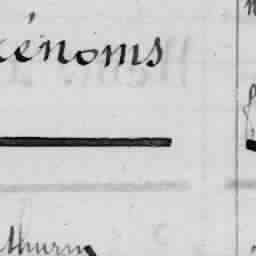 énoms
thurin